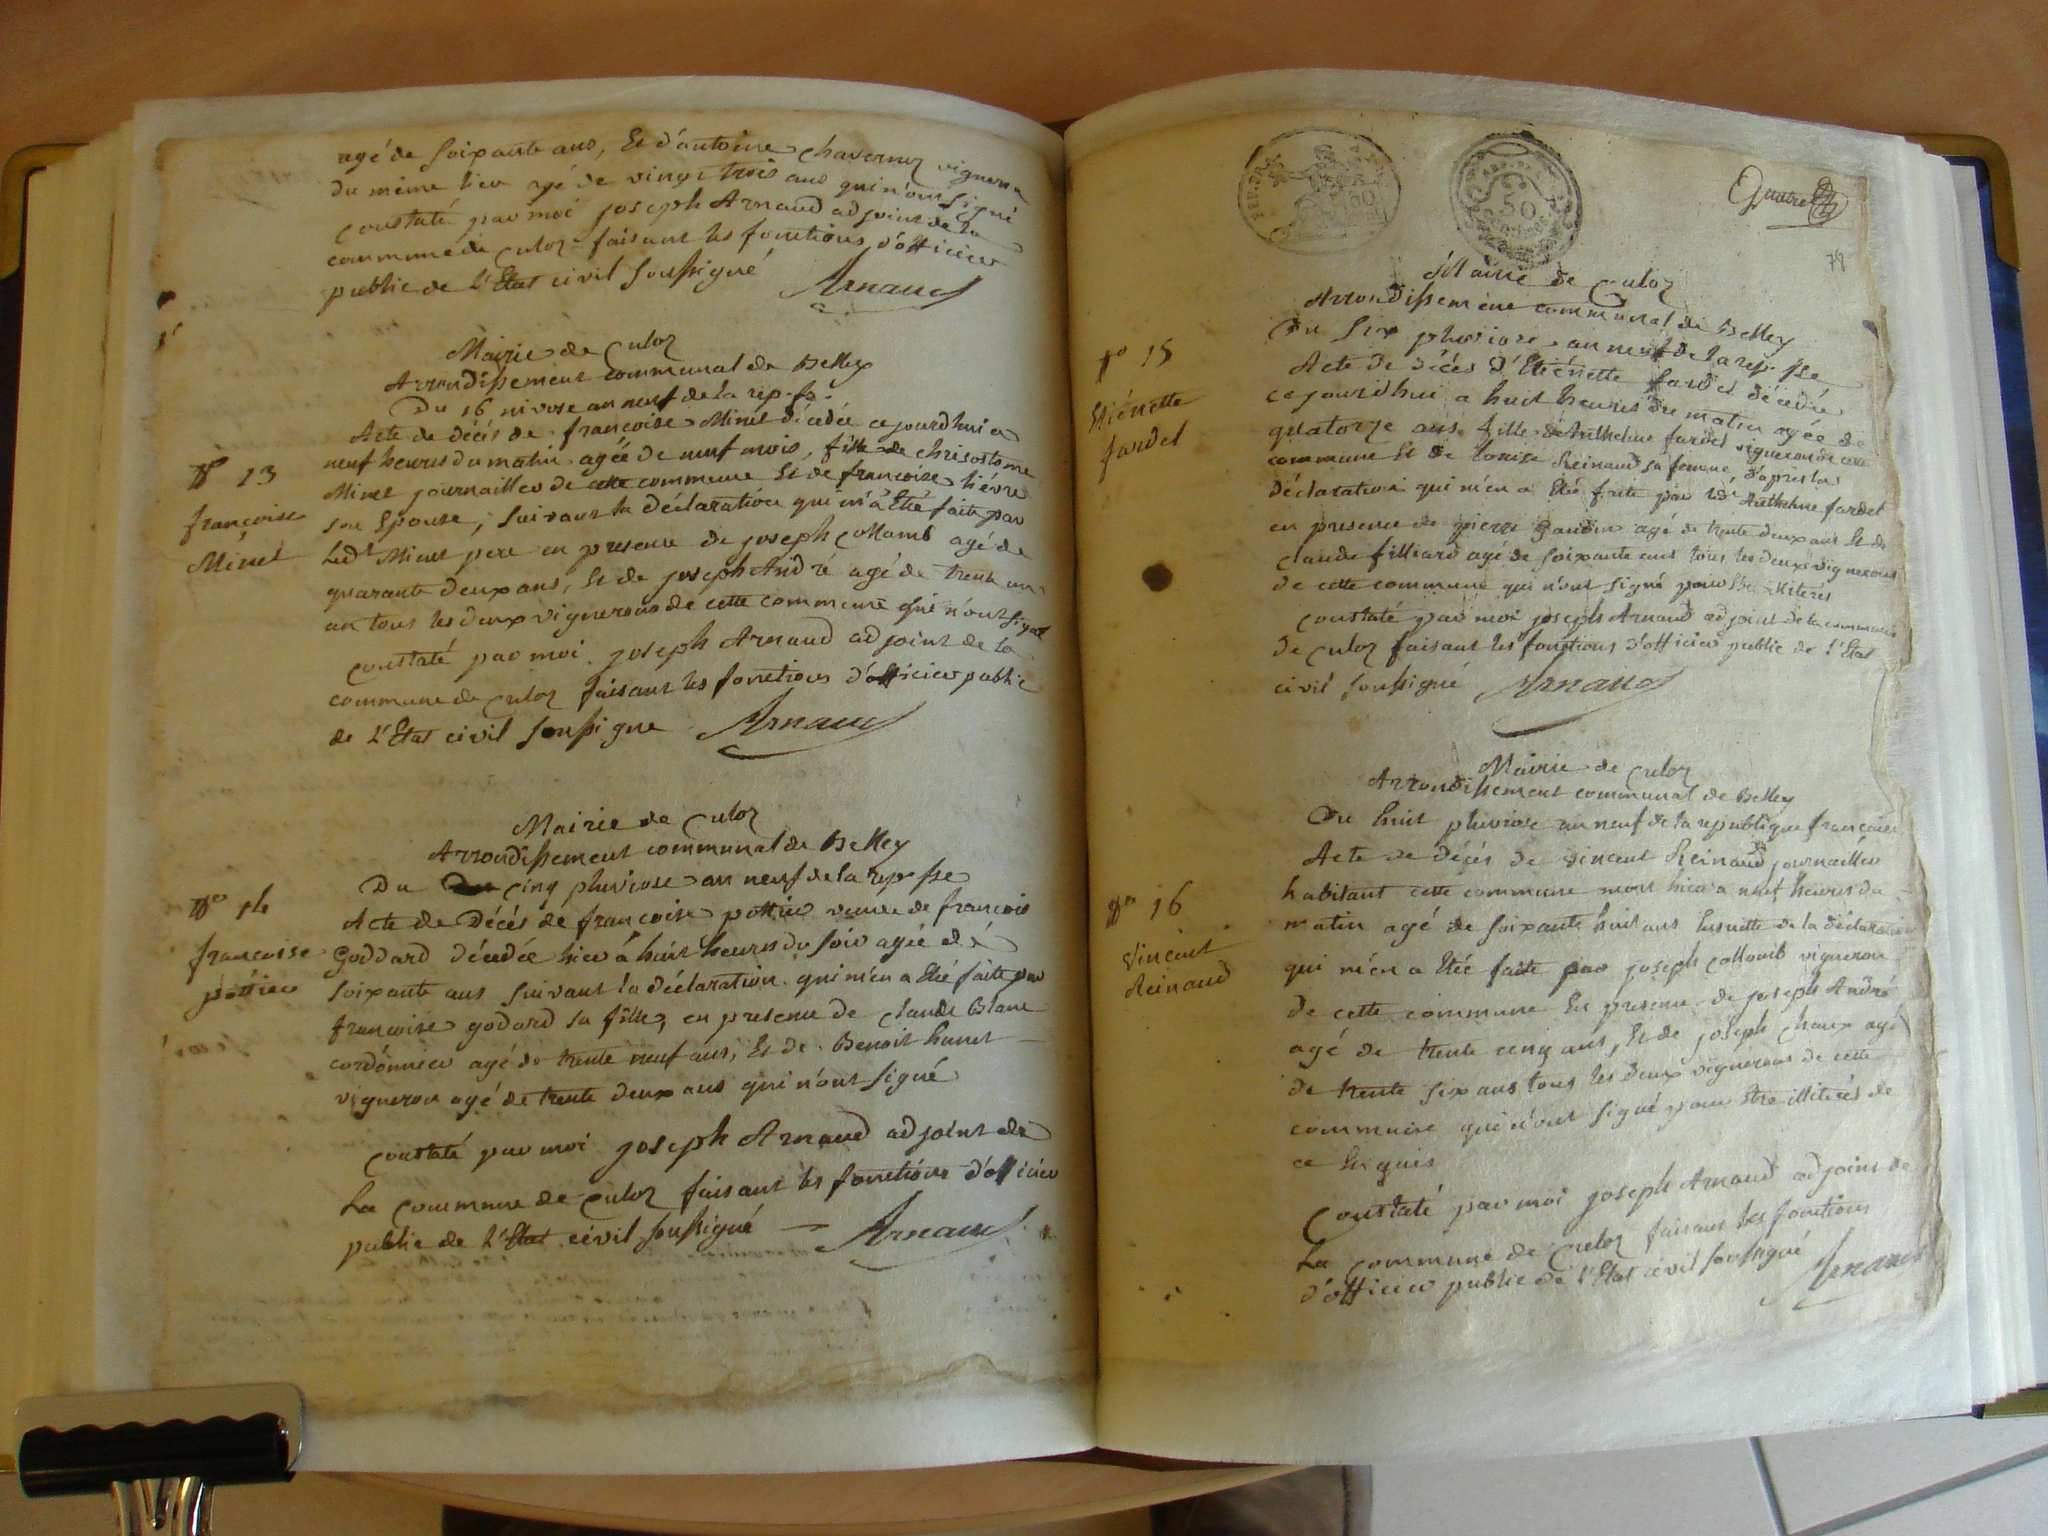 agé de soixante ans, Et d'antoine chavernoz vigneron
du même lieu agé de vingt trois ans qui n'ont signé
Constaté par moi joseph Arnaud adjoint de la
commune de Culoz faisant les fonctions d'officier
public de l'Etat civil soussigné Arnaud
Mairie de Culoz
Arrondissement communal de Belley
Du 16 nivose an neuf de la rep. fse
Acte de Décés de françoise Minet Décédée cejourdhui a
neuf heures du matin agée de neuf mois, fille de chrisostome
N° 13
françoise
Minet
Minet journaillier de cette commune Et de françoise lièvre
son Epouse, suivant la déclaration qui m'a Eté faite par
Ledt Minet pere en presence de joseph Collomb agé de
quarante deux ans, Et de joseph André agé de trente un
an tous les deux vignerons de cette commune qui n'ont signé
Constaté par moi joseph Arnaud adjoint de la
commune de Culoz faisant les fonctions d'officier public
de l'Etat civil soussigné Arnaud
Mairie de Culoz
Arrondissement communal de Belley
Du cinq pluviose an neuf de la rep. fse
N° 14
françoise
pottier
Acte de Décés de françoise pottier veuve de francois
Goddard décédée hier à huit heures du soir agée de
soixante ans suivant la déclaration qui m'en a Eté faite par
françoise godard sa fille, en presence de Claude Blanc
cordonnier agé de trente neuf ans, Et de Benoit hunet
vigneron agé de trente deux ans qui n'ont signé
Constaté par moi joseph Arnaud adjoint de
La commune de Culoz faisant les fonctions d'officier
public de l'Etat civil soussigné Arnaud
50
Quatre
79
Mairie de Culoz
Arrondissement communal de Belley
Du six pluviose an neuf de la rep. fse
N° 15
Etiénette
fardel
Acte de Décés d'Etiénette fardel décédée
cejourdhui a huit heures du matin agée de
quatorze ans fille de Anthelme fardel vigneron de cette
commune Et de Louise Reinaud sa femme, d'après la
déclaration qui m'en a Eté faite par ledt Anthelme fardel
en presence de pierre Gaudin agé de trente deux ans Et de
Claude filliard agé de soixante ans tous les deux vignerons
de cette commune qui n'ont signé pour Etre illiterés
Constaté par moi joseph Arnaud adjoint de la commune
de Culoz faisant les fonctions d'officier public de l'Etat
civil soussigné Arnaud
Mairie de Culoz
Arrondissement communal de Belley
Du huit pluviose an neuf de la republique françoise
N° 16
Vincent
Reinaud
Acte de décés de vincent Reinaud journaillier
habitant cette commune mort hier a neuf heures du
matin agé de soixante huit ans Ensuitte de la déclaration
qui m'en a Etée faite par joseph Collomb vigneron
de cette commune En presence de joseph André
agé de trente cinq ans, Et de joseph Chaux agé
de trente six ans tous les deux vignerons de cette
commune qui n'ont signé pour Etre illiterés de
ce Enquis
Constaté par moi joseph Arnaud adjoint de
La commune de Culoz faisant les fonctions
d'officier public de l'Etat civil soussigné Arnaud